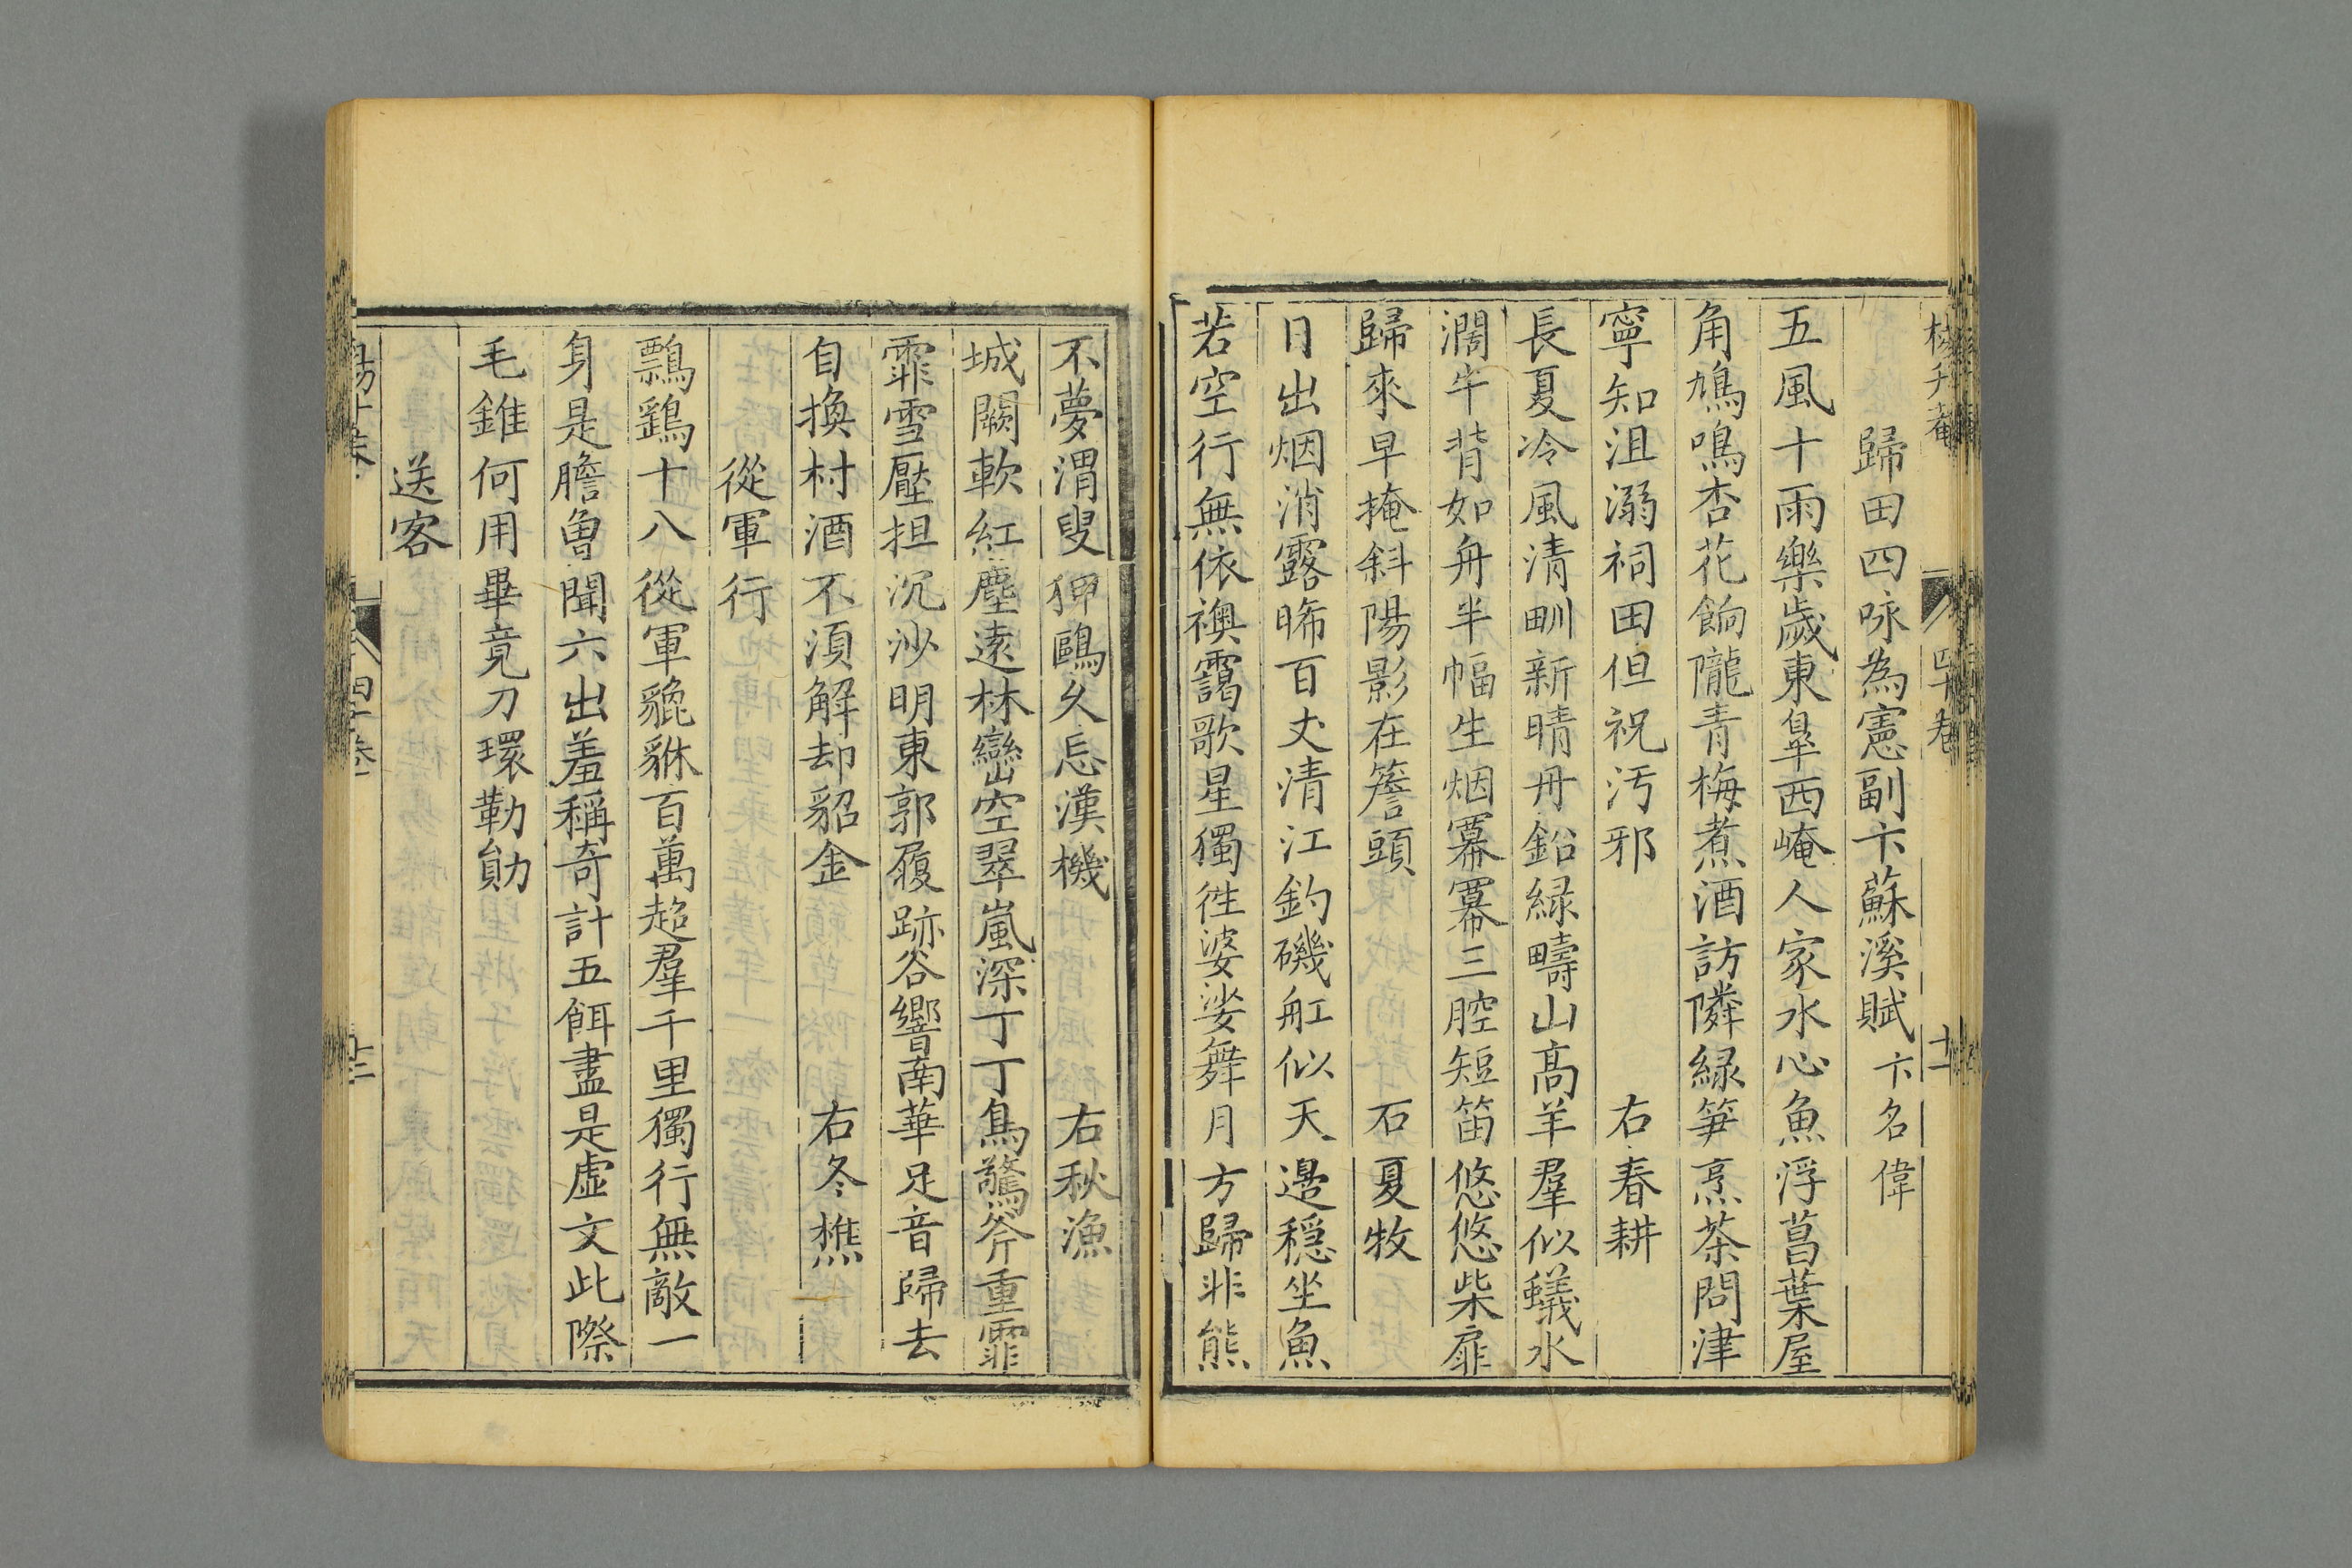 歸田四咏為憲副卞蘇溪賦卞名偉
五風十雨樂歲東臯西崦人家水心魚浮菖葉屋
角鳩鳴杏花餉隴青梅煮酒訪隣緑笋烹茶問津
寧知沮溺祠田但祝汚邪　右春耕
長夏冷風清甽新晴丹鉛緑疇山髙羊羣似蟻水
濶牛背如舟半幅生烟羃羃三腔短笛悠悠柴扉
歸來早掩斜陽影在簷頭　右夏牧
日出烟消露晞百丈清江釣磯舡似天邉穏坐魚
若空行無依襖靄歌星獨徃婆娑舞月方歸非熊
不夢渭叟狎鷗久忘漢機　右秋漁
城闕軟紅塵遠林巒空翠嵐深丁丁鳥驚斧重霏
霏雪壓担沉沙明東郭履跡谷響南華足音歸去
自換村酒不須解却貂金　右冬樵
從軍行
鷅鷂十八從軍貔貅百萬超羣千里獨行無敵一
身是膽曾聞六出羞稱奇計五餌盡是虛文此際
毛錐何用畢竟刀環勒勛
送客
四十卷
十一